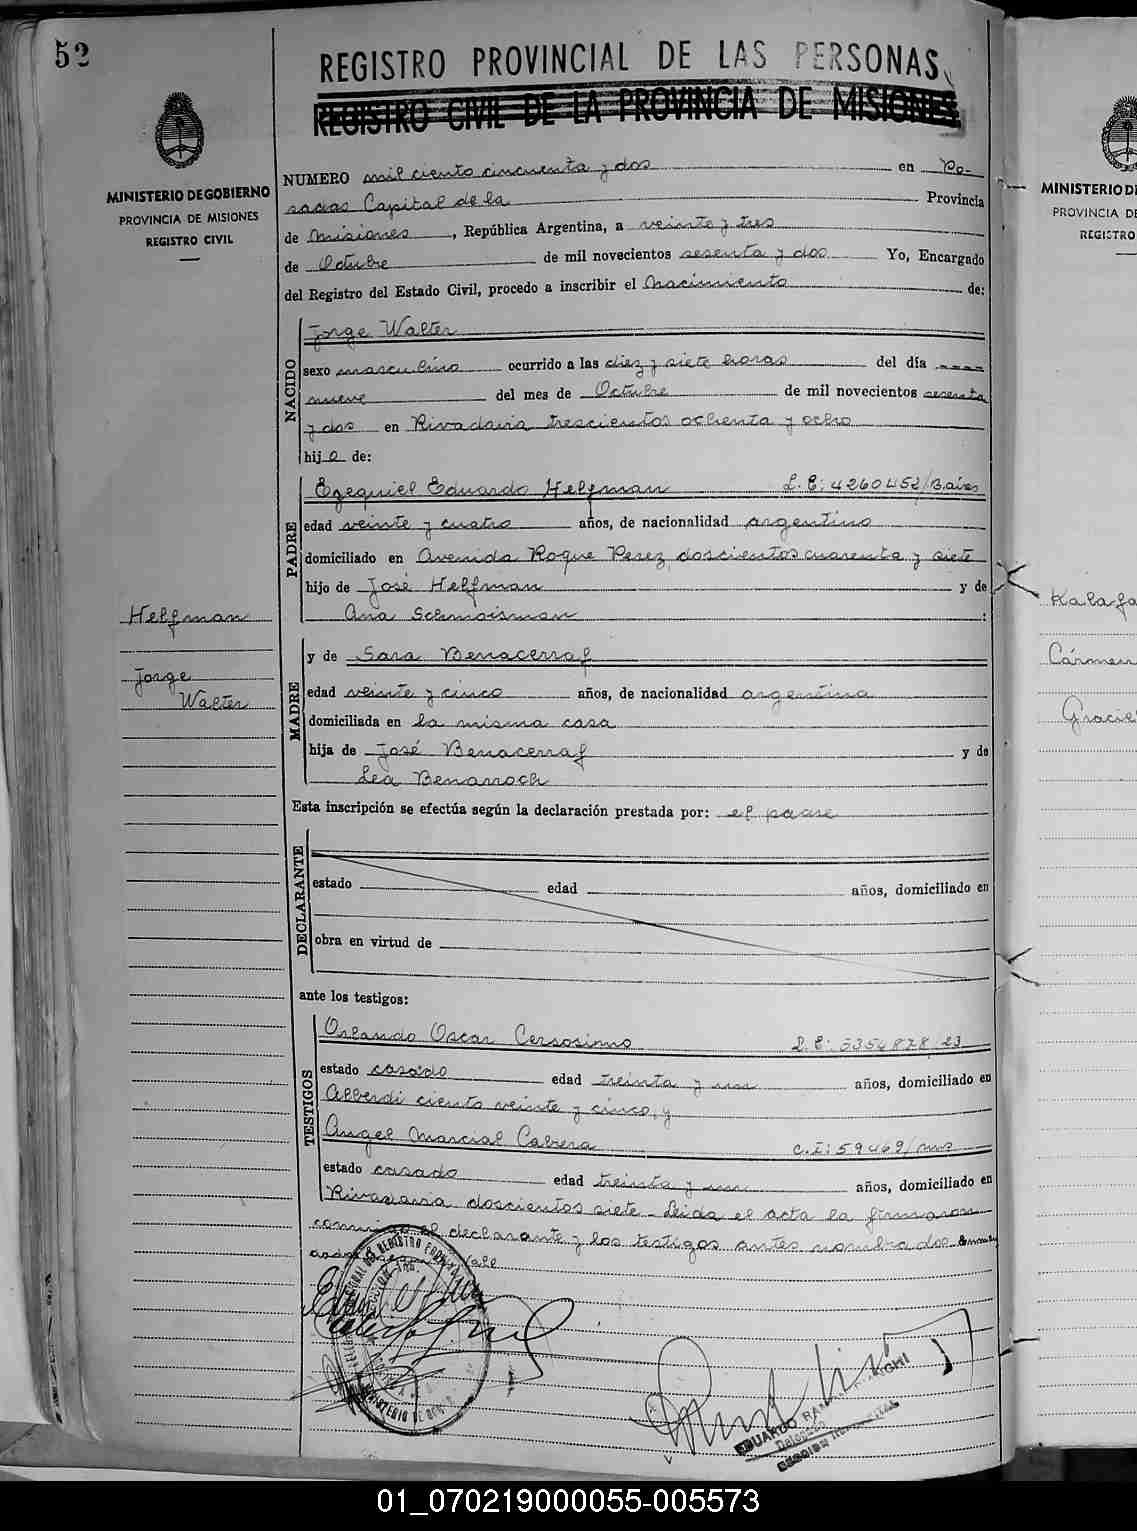 52
REGISTRO PROVINCIAL DE LAS PERSONAS
REGISTRO CIVIL DE LA PROVINCIA DE MISIONES
MINISTERIO DE GOBIERNO
PROVINCIA DE MISIONES
REGISTRO CIVIL
NUMERO mil ciento cincuenta y dos en Po-
sadas Capital de la Provincia
de Misiones, República Argentina, a veinte y tres
de Octubre de mil novecientos sesenta y dos Yo, Encargado
del Registro del Estado Civil, procedo a inscribir el Nacimiento de:
NACIDO
Jorge Walter
sexo masculino ocurrido a las diez y siete horas del día ----
nueve del mes de Octubre de mil novecientos sesenta
y dos en Rivadavia trescientos ochenta y ocho
hijo de:
PADRE
Ezequiel Eduardo Helfman L.E: 4260452/B.aires
edad veinte y cuatro años, de nacionalidad argentino
domiciliado en Avenida Roque Perez doscientos cuarenta y siete
hijo de José Helfman y de
Ana Schmoisman :
Helfman
Jorge
Walter
MADRE
y de Sara Benacerraf
edad veinte y cinco años, de nacionalidad argentina
domiciliada en la misma casa
hija de José Benacerraf y de
Lea Benarroch
Esta inscripción se efectúa según la declaración prestada por: el padre
DECLARANTE
estado edad años, domiciliado en
obra en virtud de
ante los testigos:
TESTIGOS
Orlando Oscar Cersosimo L.E: 5354878/23
estado casado edad treinta y un años, domiciliado en
Alberdi ciento veinte y cinco, y
Angel Marcial Cabrera C.I: 59469/mns
estado casado edad treinta y un años, domiciliado en
Rivadavia doscientos siete - Leida el acta la firmaron
conmigo el declarante y los testigos antes nombrados
Vale
EDUARDO
Delegado
MINISTERIO D
PROVINCIA DE
REGISTRO
Kalafa
Cármen
Graciel
01_070219000055-005573